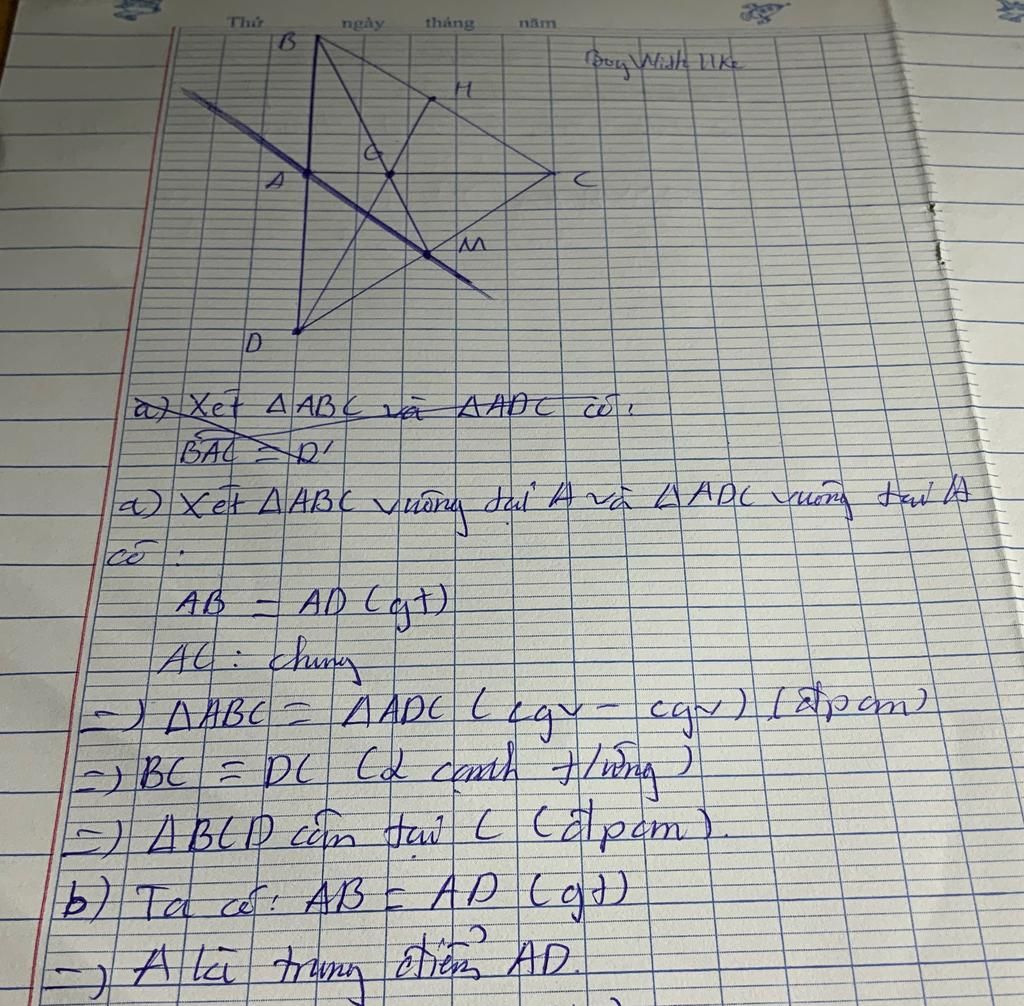 Thứ ngày tháng năm
B
Boy With Uke
H
G
A
C
M
D
a) Xét ΔABC và ΔADC có:
BAC = D'
a) Xét ΔABC vuông tại A và ΔADC vuông tại A
có :
AB = AD (gt)
AC : chung
=) ΔABC = ΔADC ( cgv - cgv ) (đpcm)
=) BC = DC (2 cạnh t/ứng)
=) ΔBCD cân tại C (đpcm).
b) Ta có: AB = AD (gt)
=) A là trung điểm AD.